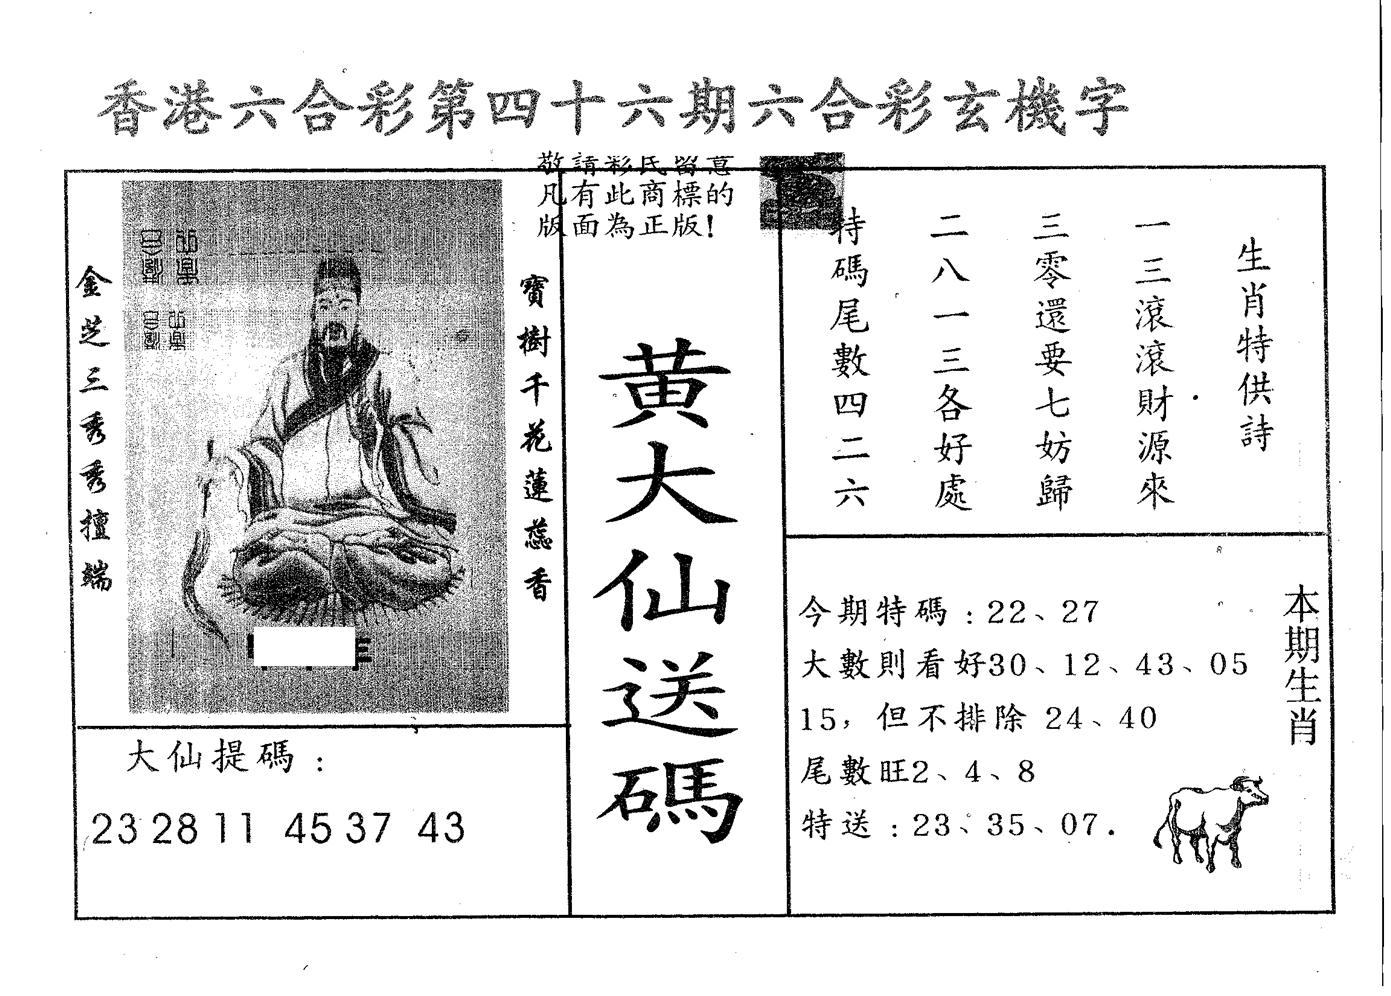 香港六合彩第四十六期六合彩玄機字
敬請彩民留意
凡有此商標的
版面為正版!
金芝三秀秀擅端
寶樹千花蓮蕊香
黄大仙送碼
生肖特供詩
一三滾滾財源來
三零還要七妨歸
二八一三各好處
特碼尾數四二六
大仙提碼:
23 28 11 45 37 43
本期生肖
今期特碼:22、27
大數則看好30、12、43、05
15，但不排除 24、40
尾數旺2、4、8
特送:23、35、07.